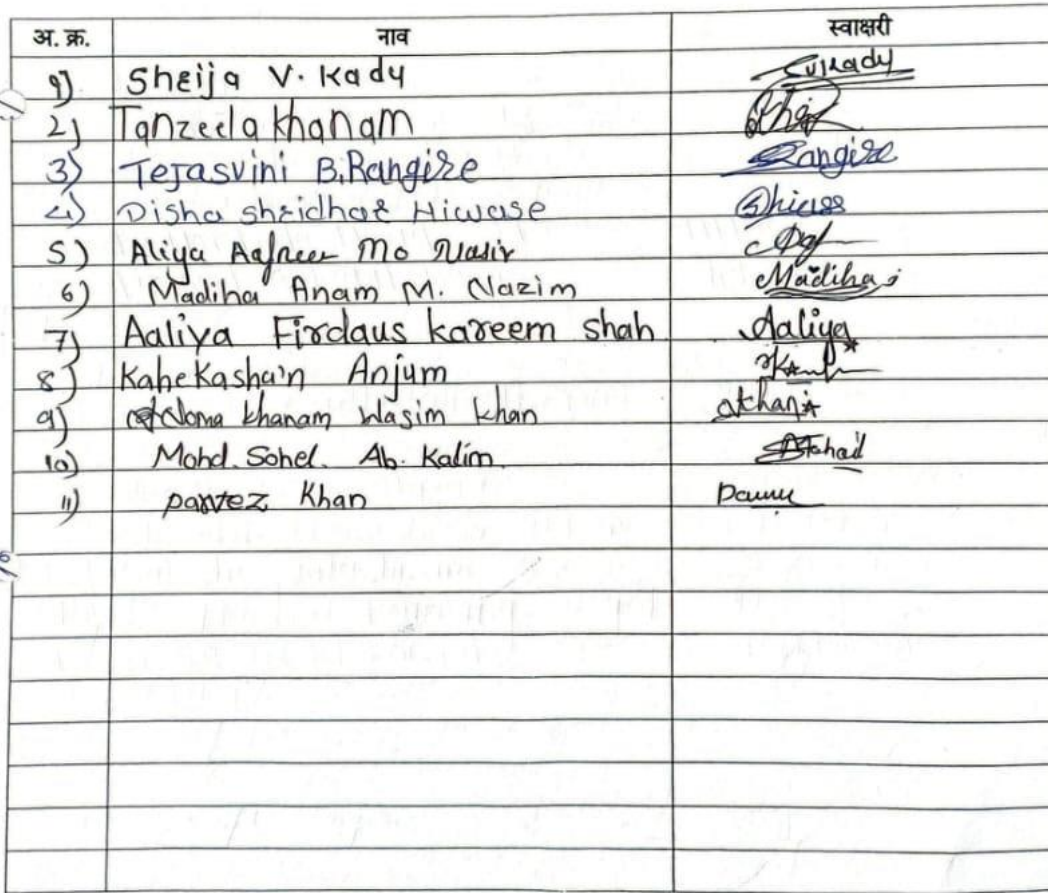 अ. क्र. नाव स्वाक्षरी
१) Sheija V. Kady
2) Tanzeela Khanam
3) Tejasvini B. Rangire Rangire
4) Disha Shridhar Hiwase
5) Aliya Aafreen Mo Nasir
6) Madiha Anam M. Nazim Madiha
7) Aaliya Firdaus kareem shah Aaliya
8) Kahekasha'n Anjum
9) Khanam Wasim Khan
10) Mohd. Sohel. Ab. Kalim.
11) parvez Khan